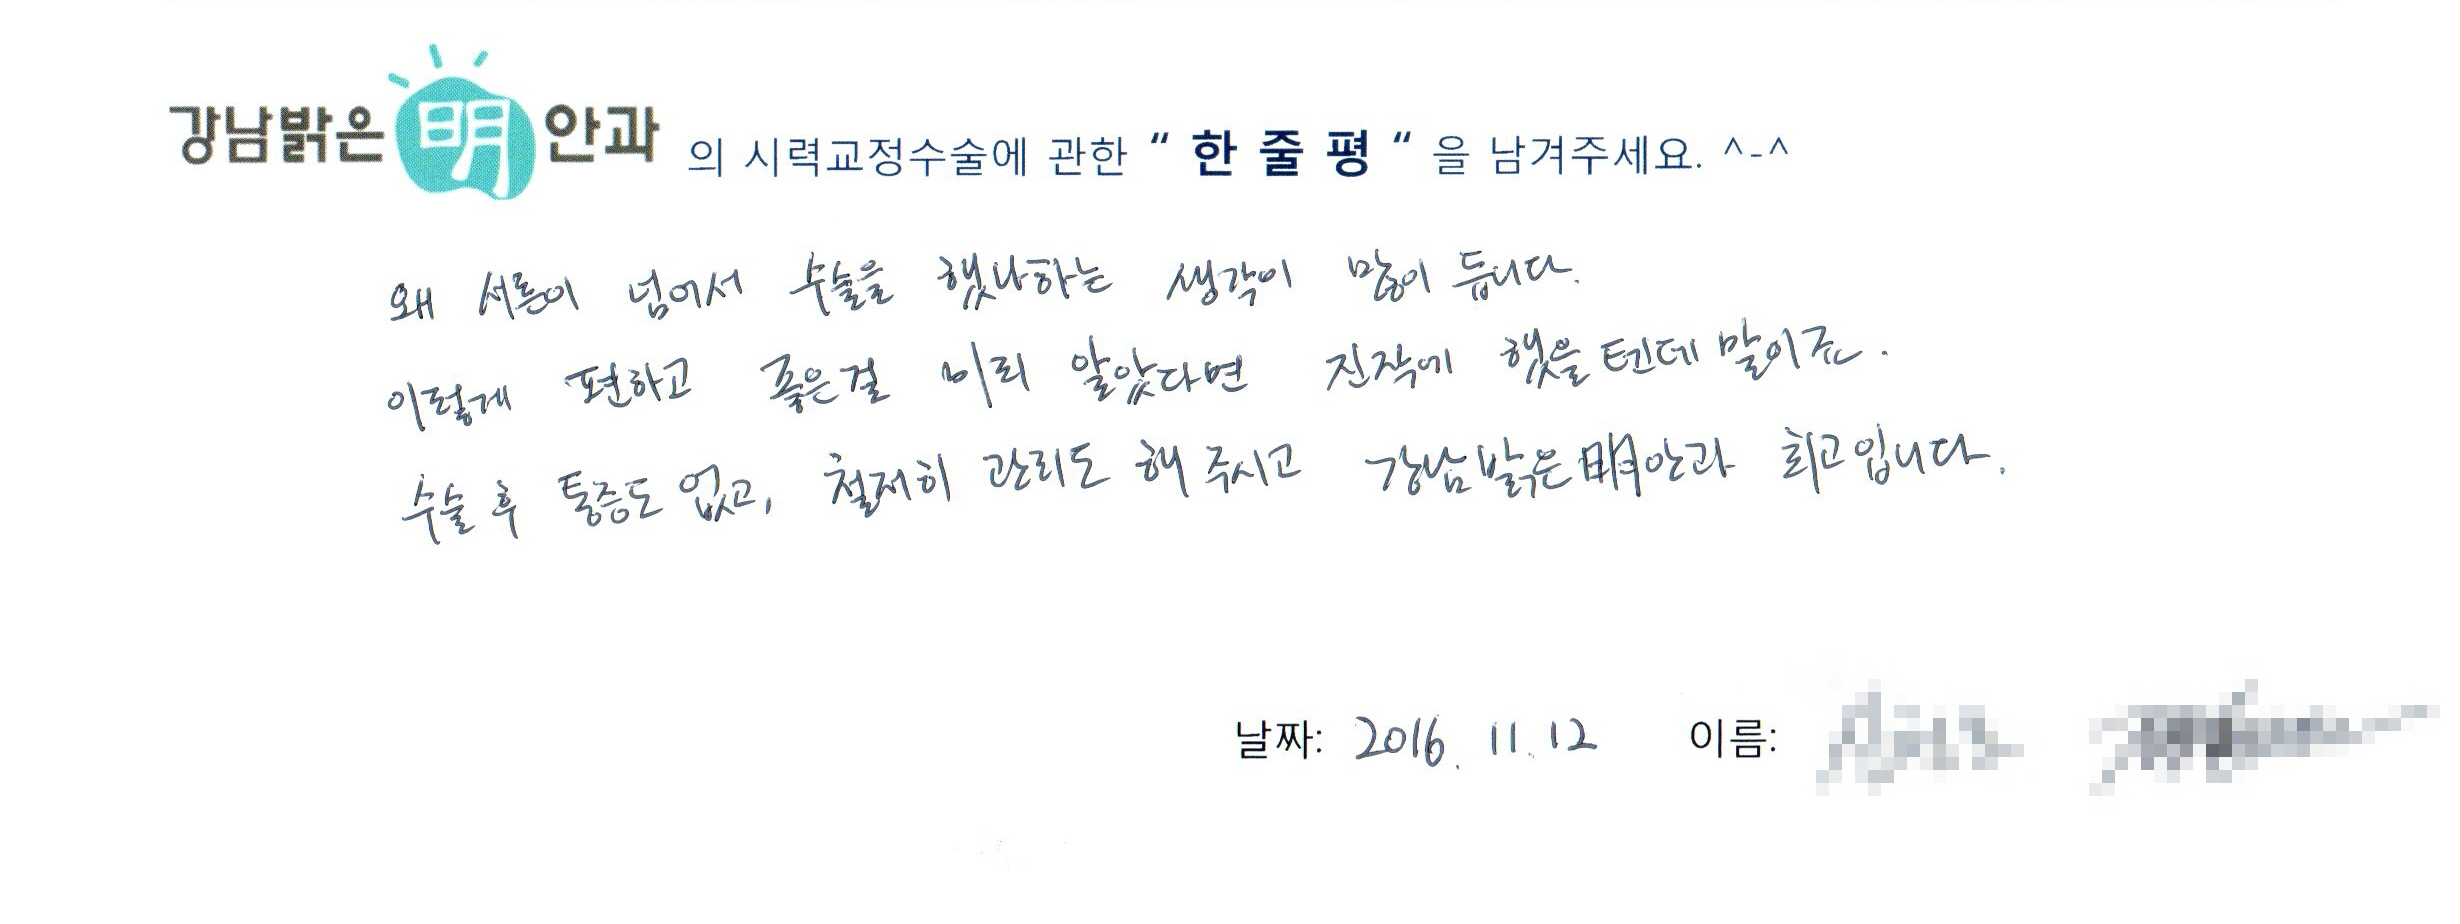 강남밝은明안과 의 시력교정수술에 관한 “ 한 줄 평 “ 을 남겨주세요. ^-^
왜 서른이 넘어서 수술을 했나하는 생각이 많이 듭니다.
이렇게 편하고 좋은걸 미리 알았다면 진작에 했을 텐데 말이죠.
수술 후 통증도 없고, 철저히 관리도 해 주시고 강남밝은明안과 최고입니다.
날짜: 2016. 11. 12 이름: